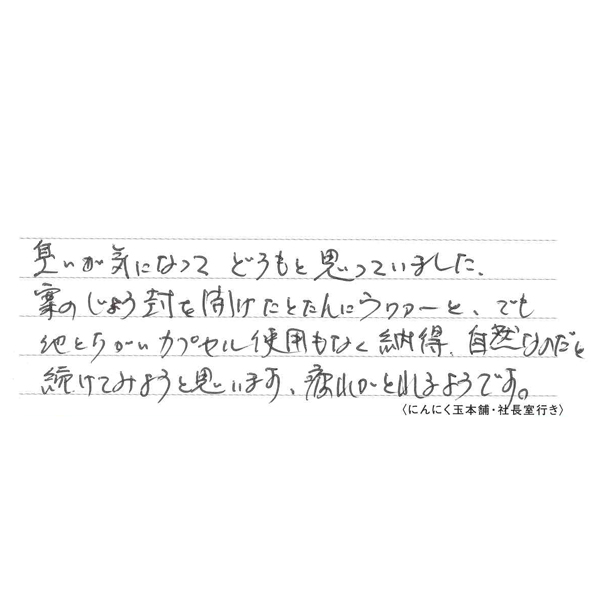 臭いが気になって どうもと思っていました、
案のじょう封を開けたとたんにウワァーと、でも
他とちがいカプセル使用もなく納得、自然なのだと
続けてみようと思います、疲れがとれるようです。
〈にんにく玉本舗・社長室行き〉